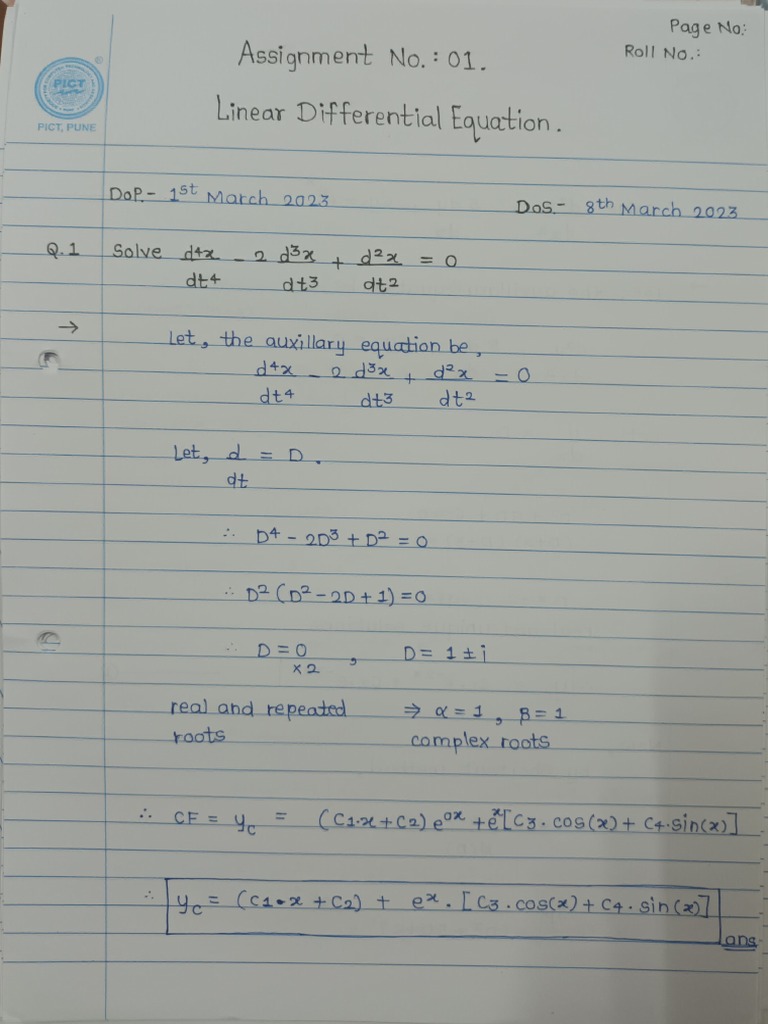 Page No:
Assignment No. : 01.
Roll No.:
PICT
PICT, PUNE
Linear Differential Equation.
DoP.- 1st March 2023
DoS.- 8th March 2023
Q.1 Solve d⁴x/dt⁴ - 2 d³x/dt³ + d²x/dt² = 0
→ Let, the auxillary equation be,
d⁴x/dt⁴ - 2 d³x/dt³ + d²x/dt² = 0
Let, d/dt = D.
∴ D⁴ - 2D³ + D² = 0
∴ D² (D² - 2D + 1) = 0
∴ D = 0 , D = 1 ± i
×2
real and repeated ⇒ α = 1, β = 1
roots complex roots
∴ CF = y_c = (C1·x + C2) e^0x + e^x [C3 · cos(x) + C4 · sin(x)]
∴ y_c = (C1 · x + C2) + e^x · [C3 · cos(x) + C4 · sin(x)]
ans